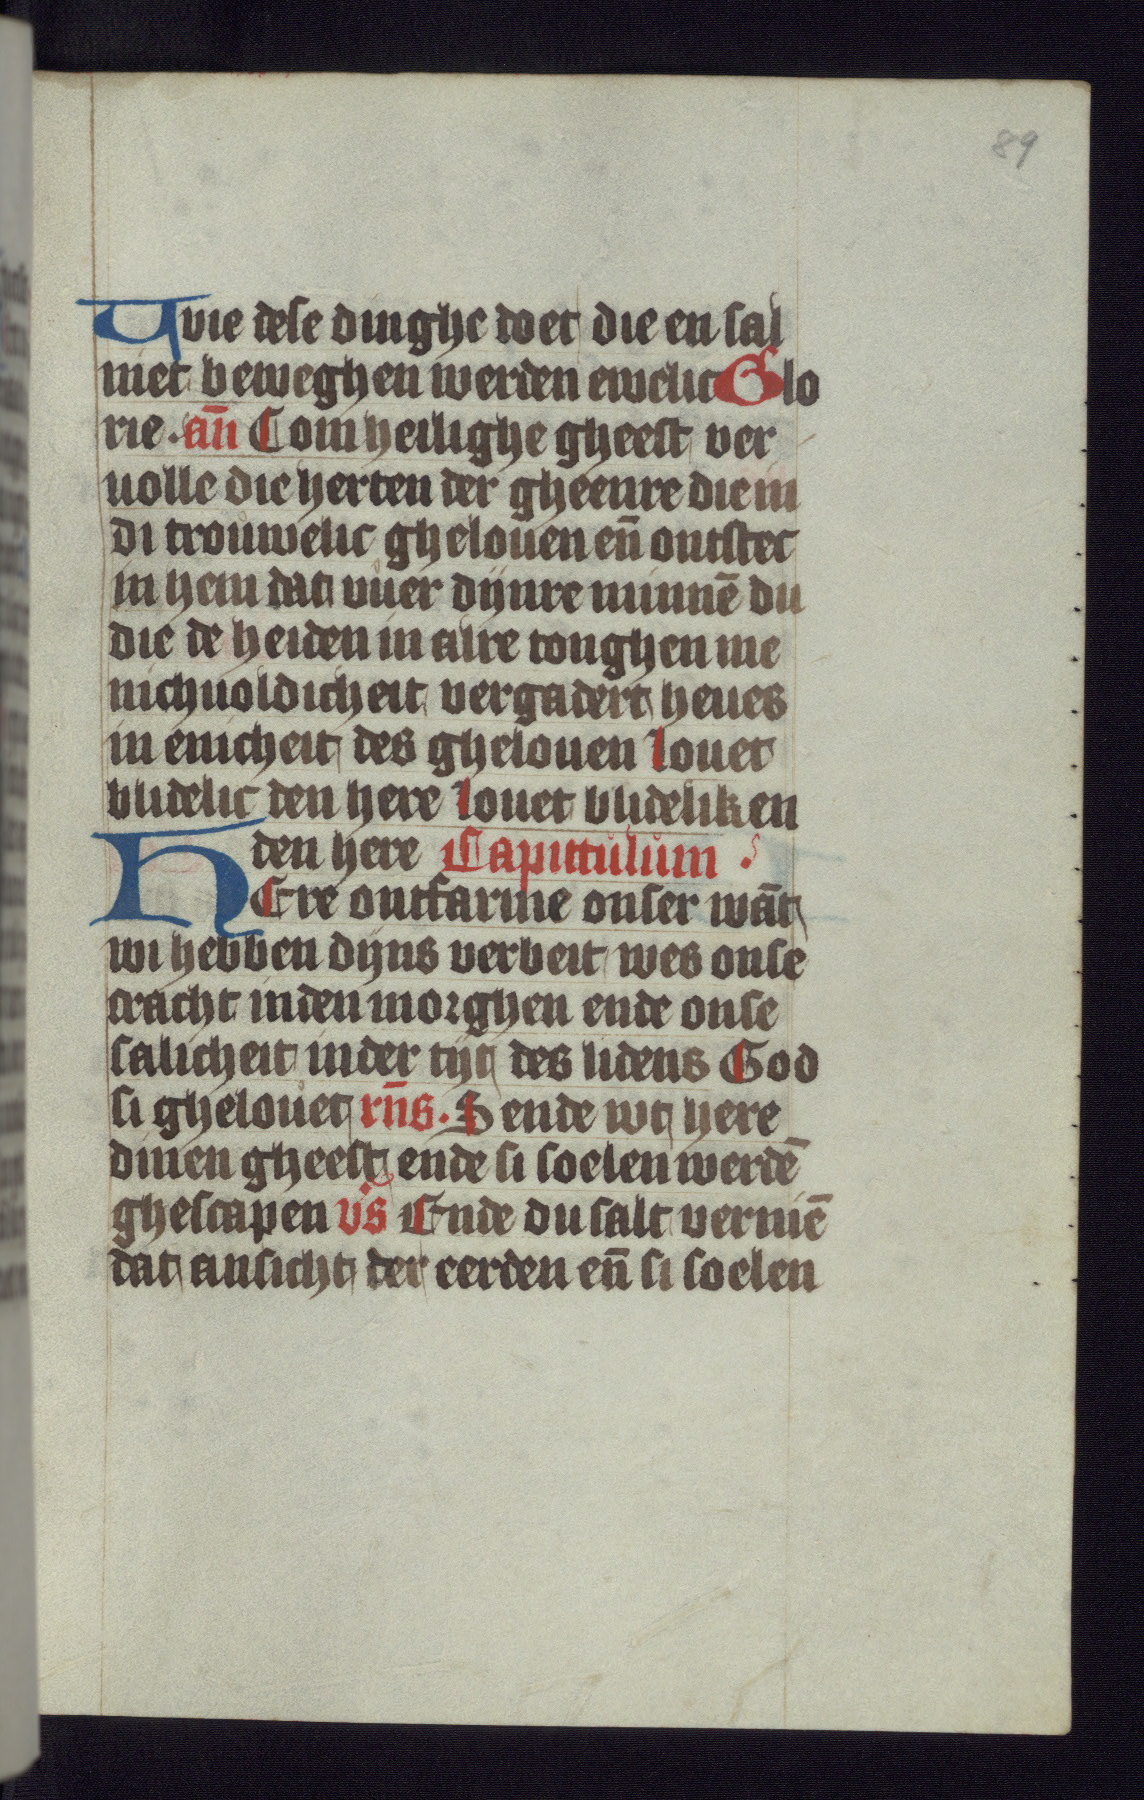 89
Wie dese dinghe doet die en sal
niet beweghen werden ewelic Glo
rie. an̄ Com heilighe gheest ver
uolle die herten der gheenre die in
di trouwelic ghelouen en̄ ontstec
in hem dat vuer dijnre minnē du
die de heiden in alre tonghen me
nichuoldicheit vergadert heues
in enicheit des ghelouen louet
blidelic den here louet blideliken
den here Capittulum.
HEre ontfarme onser wāt
wi hebben dijns verbeit wes onse
cracht inden morghen ende onse
salicheit inder tijt des lidens God
si ghelouet rn̄s. Sende wt here
dinen gheest ende si soelen werdē
ghescapen vs̄ Ende du salt verniē
dat ansicht der eerden en̄ si soelen